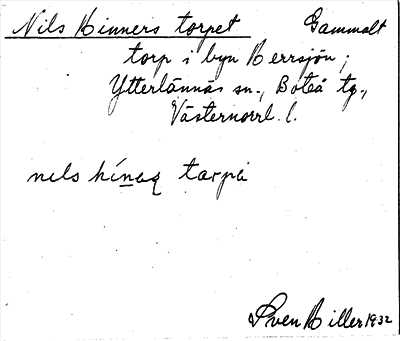 Nils Hinners torpet Gammalt
torp i byn Herrsjön;
Ytterlännäs sn., Boteå tg.,
Västernorrl. l.
nils hínaɋ tarpa
Sven Hiller 1932